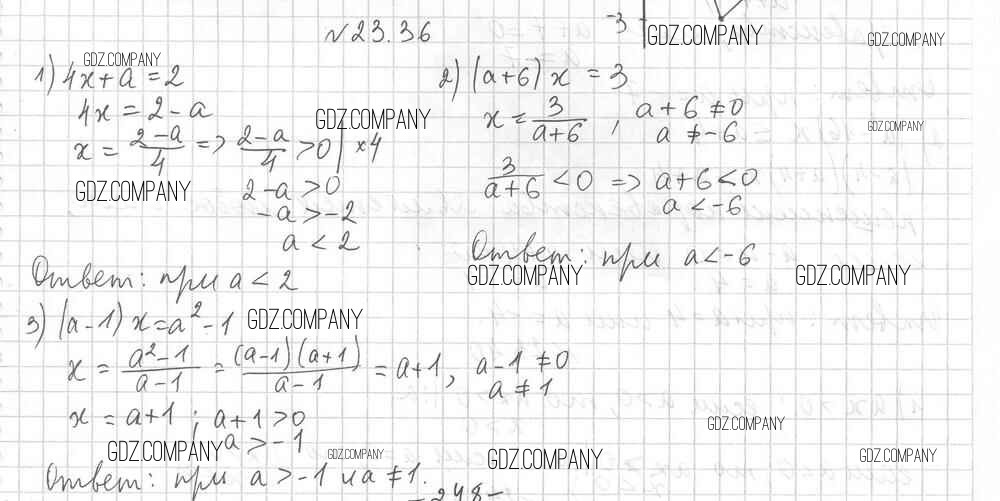 №23.36
-3
1) 4x+a=2
4x=2-a
x = (2-a)/4 => (2-a)/4 > 0 | ×4
2-a>0
-a>-2
a<2
Ответ: при a<2
2) (a+6)x = 3
x = 3/(a+6), a+6≠0
a≠-6
3/(a+6) < 0 => a+6<0
a<-6
Ответ: при a<-6
3) (a-1)x=a²-1
x = (a²-1)/(a-1) = ((a-1)(a+1))/(a-1) = a+1, a-1≠0
a≠1
x = a+1; a+1>0
a>-1
Ответ: при a>-1 и a≠1.
-248-
GDZ.COMPANY
GDZ.COMPANY
GDZ.COMPANY
GDZ.COMPANY
GDZ.COMPANY
GDZ.COMPANY
GDZ.COMPANY
GDZ.COMPANY
GDZ.COMPANY
GDZ.COMPANY
GDZ.COMPANY
GDZ.COMPANY
GDZ.COMPANY
GDZ.COMPANY